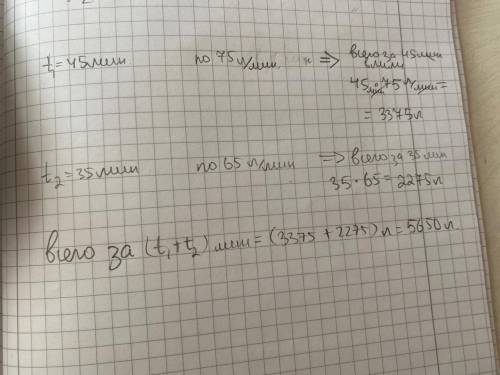 t₁=45мин по 75 л/мин => всего за 45мин
влили
45мин·75 л/мин=
= 3375л
t₂=35мин по 65 л/мин => всего за 35 мин
35·65=2275л
всего за (t₁+t₂) мин=(3375+2275)л=5650л.